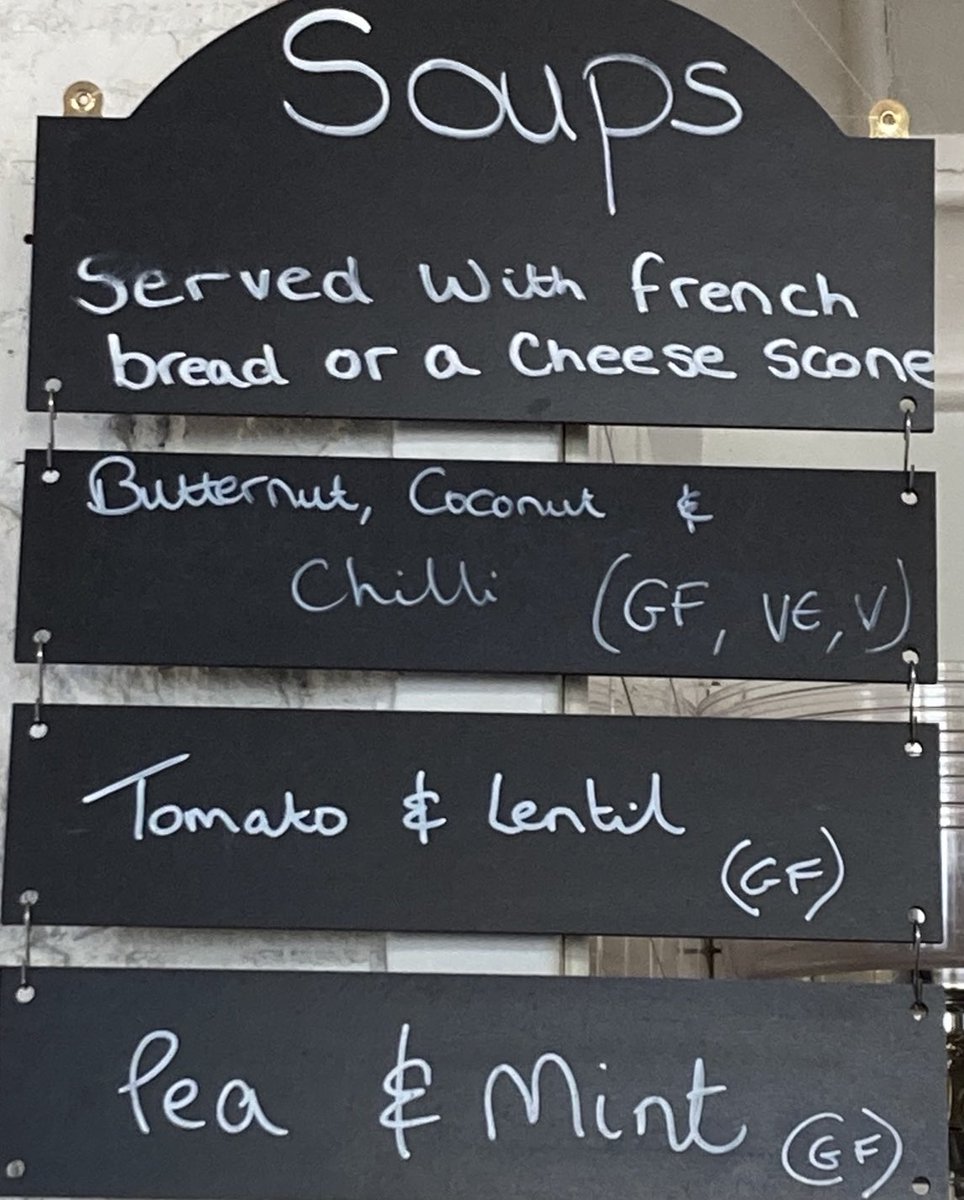 Soups
Served with french
bread or a Cheese Scone
Butternut, Coconut &
Chilli (GF, VE, V)
Tomato & Lentil
(GF)
Pea & Mint (GF)